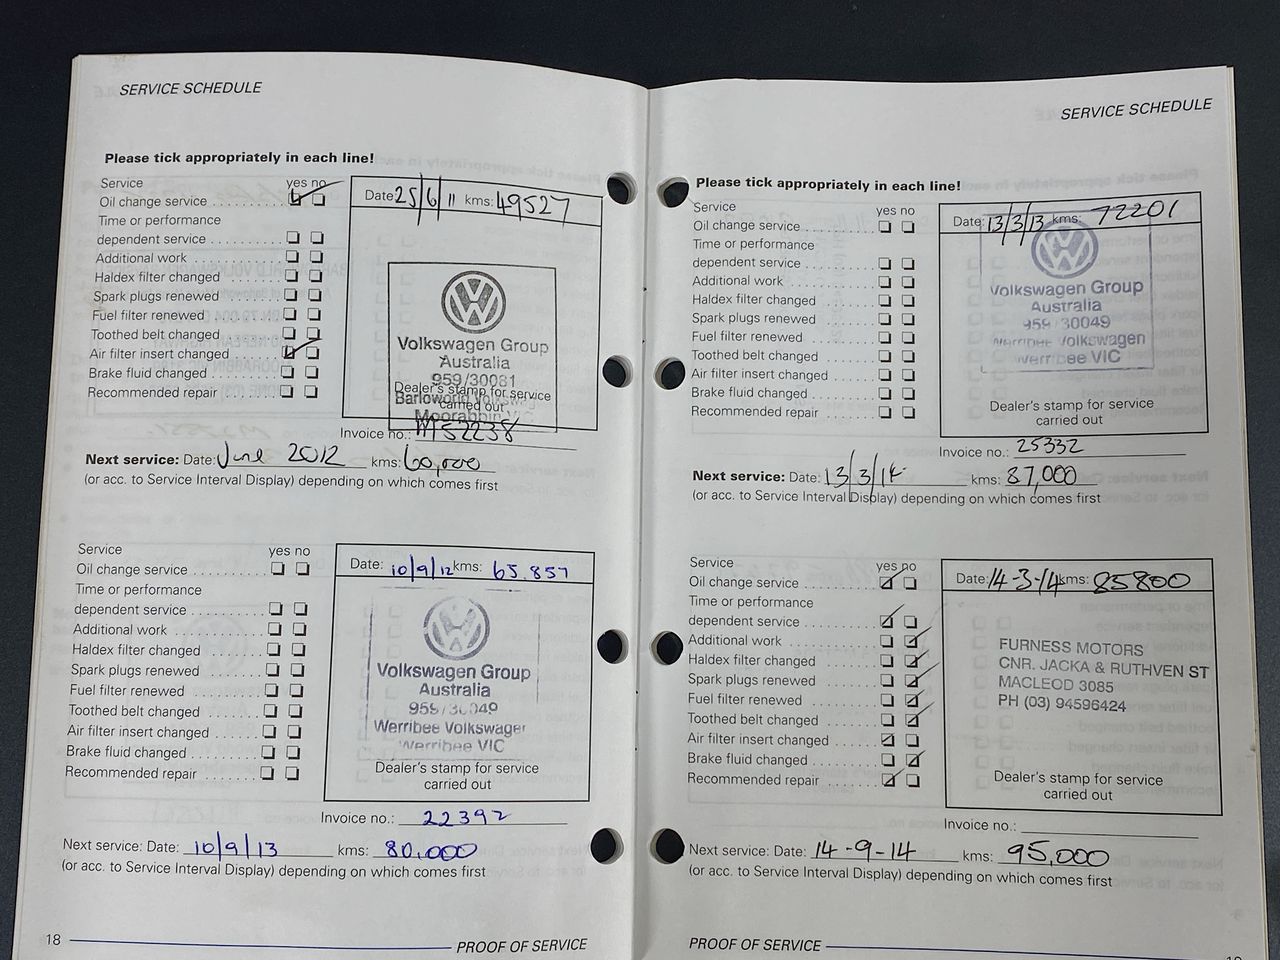 SERVICE SCHEDULE
Please tick appropriately in each line!
Service yes no
Oil change service
Time or performance
dependent service
Additional work
Haldex filter changed
Spark plugs renewed
Fuel filter renewed
Toothed belt changed
Air filter insert changed
Brake fluid changed
Recommended repair
Date: 25/6/11 kms: 49527
Volkswagen Group
Australia
959/30031
Dealer's stamp for service
carried out
Barloworld Volkswagen
Moorabbin VIC
Invoice no.: M52238
Next service: Date: June 2012 kms: 60,000
(or acc. to Service Interval Display) depending on which comes first
Service yes no
Oil change service
Time or performance
dependent service
Additional work
Haldex filter changed
Spark plugs renewed
Fuel filter renewed
Toothed belt changed
Air filter insert changed
Brake fluid changed
Recommended repair
Date: 10/9/12 kms: 65.857
Volkswagen Group
Australia
959/30049
Werribee Volkswagen
Werribee VIC
Dealer's stamp for service
carried out
Invoice no.: 22392
Next service: Date: 10/9/13 kms: 80,000
(or acc. to Service Interval Display) depending on which comes first
18 PROOF OF SERVICE
SERVICE SCHEDULE
Please tick appropriately in each line!
Service yes no
Oil change service
Time or performance
dependent service
Additional work
Haldex filter changed
Spark plugs renewed
Fuel filter renewed
Toothed belt changed
Air filter insert changed
Brake fluid changed
Recommended repair
Date: 13/3/13 kms: 72201
Volkswagen Group
Australia
959/30049
Werribee Volkswagen
Werribee VIC
Dealer's stamp for service
carried out
Invoice no.: 25332
Next service: Date: 13/3/14 kms: 87,000
(or acc. to Service Interval Display) depending on which comes first
Service yes no
Oil change service
Time or performance
dependent service
Additional work
Haldex filter changed
Spark plugs renewed
Fuel filter renewed
Toothed belt changed
Air filter insert changed
Brake fluid changed
Recommended repair
Date: 14-3-14 kms: 85800
FURNESS MOTORS
CNR. JACKA & RUTHVEN ST
MACLEOD 3085
PH (03) 94596424
Dealer's stamp for service
carried out
Invoice no.:
Next service: Date: 14-9-14 kms: 95,000
(or acc. to Service Interval Display) depending on which comes first
PROOF OF SERVICE